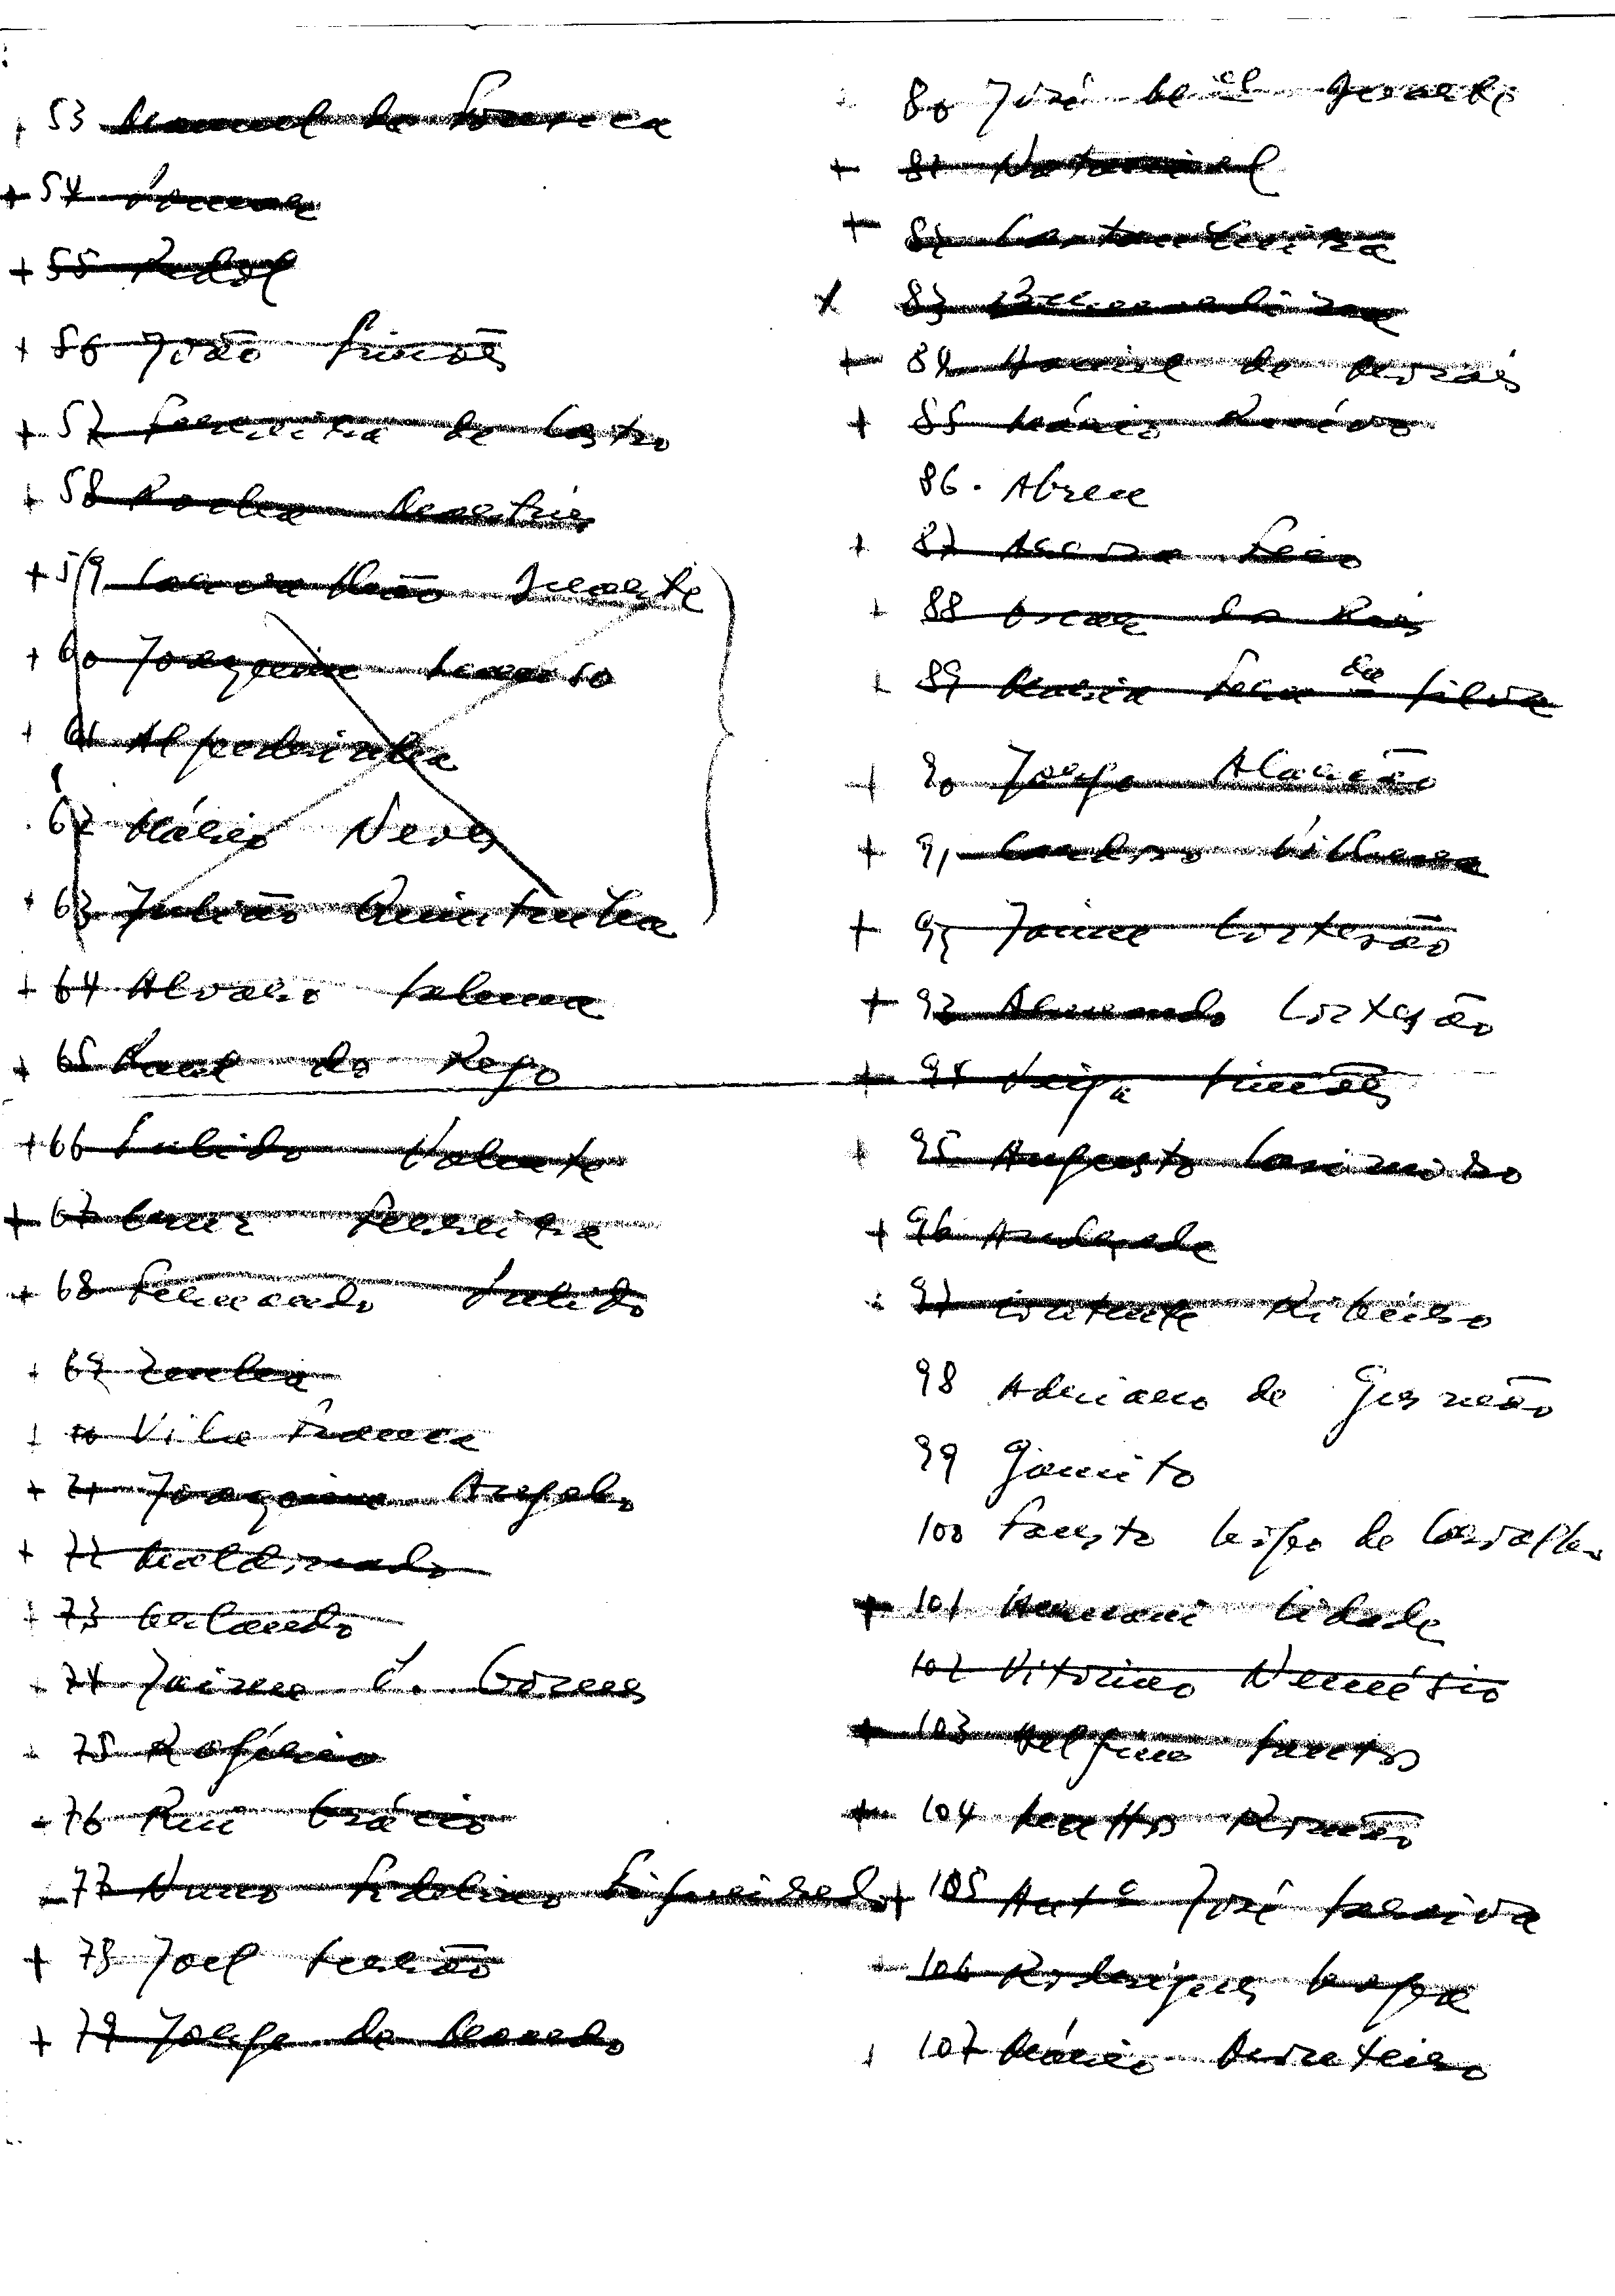 + 53 Manuel da Fonseca
+ 54
+ 55 Redol
+ 56 João Simões
+ 57 Ferreira de Castro
+ 58 Rocha
+ 59 Duarte
+ 60 Joaquim
+ 61 Alpedrinha
62 Mário Neves
+ 63 Julião Quintinha
+ 64 Alvaro Salema
+ 65 Raul do Rego
+ 66 Pulido Valente
+ 67 Cruz Ferreira
+ 68 Fernando Pulido
+ 69 Zenha
+ 70 Vila Franca
+ 71 Joaquim Angelo
+ 72 Maldonado
+ 73 Orlando
+ 74 Jaime C. Gomes
+ 75 Rogério
76 Rui Grácio
77 Nuno Fidelino Figueiredo
+ 78 Joel Serrão
+ 79 Jorge de Macedo
80 José de
+ 81 Nataniel
+ 82 Castanheira
x 83
+ 84 de Morais
+ 85 Mário
86. Abreu
+ 87
+ 88 Oscar dos Reis
+ 89 Maria da Silva
+ 90 Jorge Alarcão
+ 91 Cardoso Vilhena
+ 92 Jaime Cortesão
+ 93 Armando Cortesão
+ 94 Veiga Simões
+ 95 Augusto Casimiro
+ 96 Andrade
+ 97 Ribeiro
98 Adriano de Gusmão
99 Gamito
100 Fausto Lopo de Carvalho
+ 101 Hernani Cidade
102 Vitorino Nemésio
+ 103 Delfim Santos
+ 104 Mattos Romão
+ 105 Antº José Saraiva
+ 106 Rodrigues Lapa
+ 107 Mário Monteiro